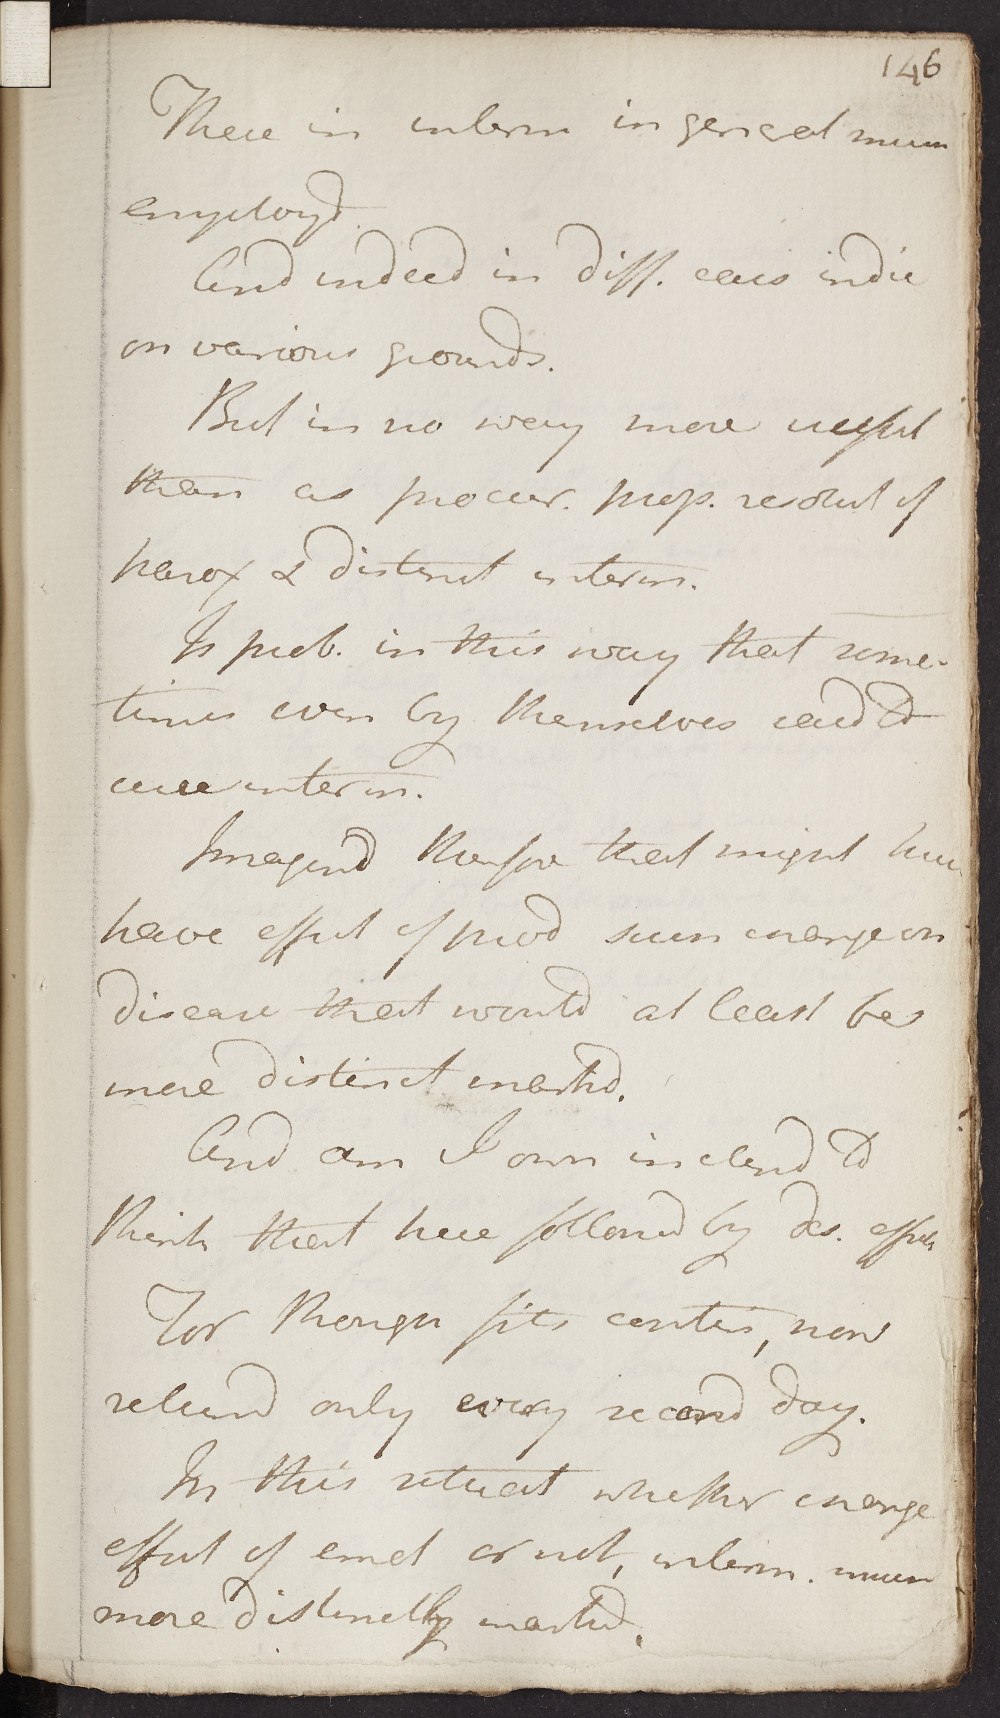 146
These in interm in general much
employd.
And indeed in diff. cases indic
on various grounds.
But in no way more useful
than as procur. prop. resolut of
parox & distinct interm.
Is prob. in this way that some-
times even by themselves and to
cure interm.
Imagind therfor that might here
have effect of prod such change on
disease that would at least be
more distinct markd.
And am I own inclend to
think that here followd by des. effects
For though fits contin, now
returnd only every second day.
In this situat whether change
effect of emet or not, interm. much
more distinctly markd.